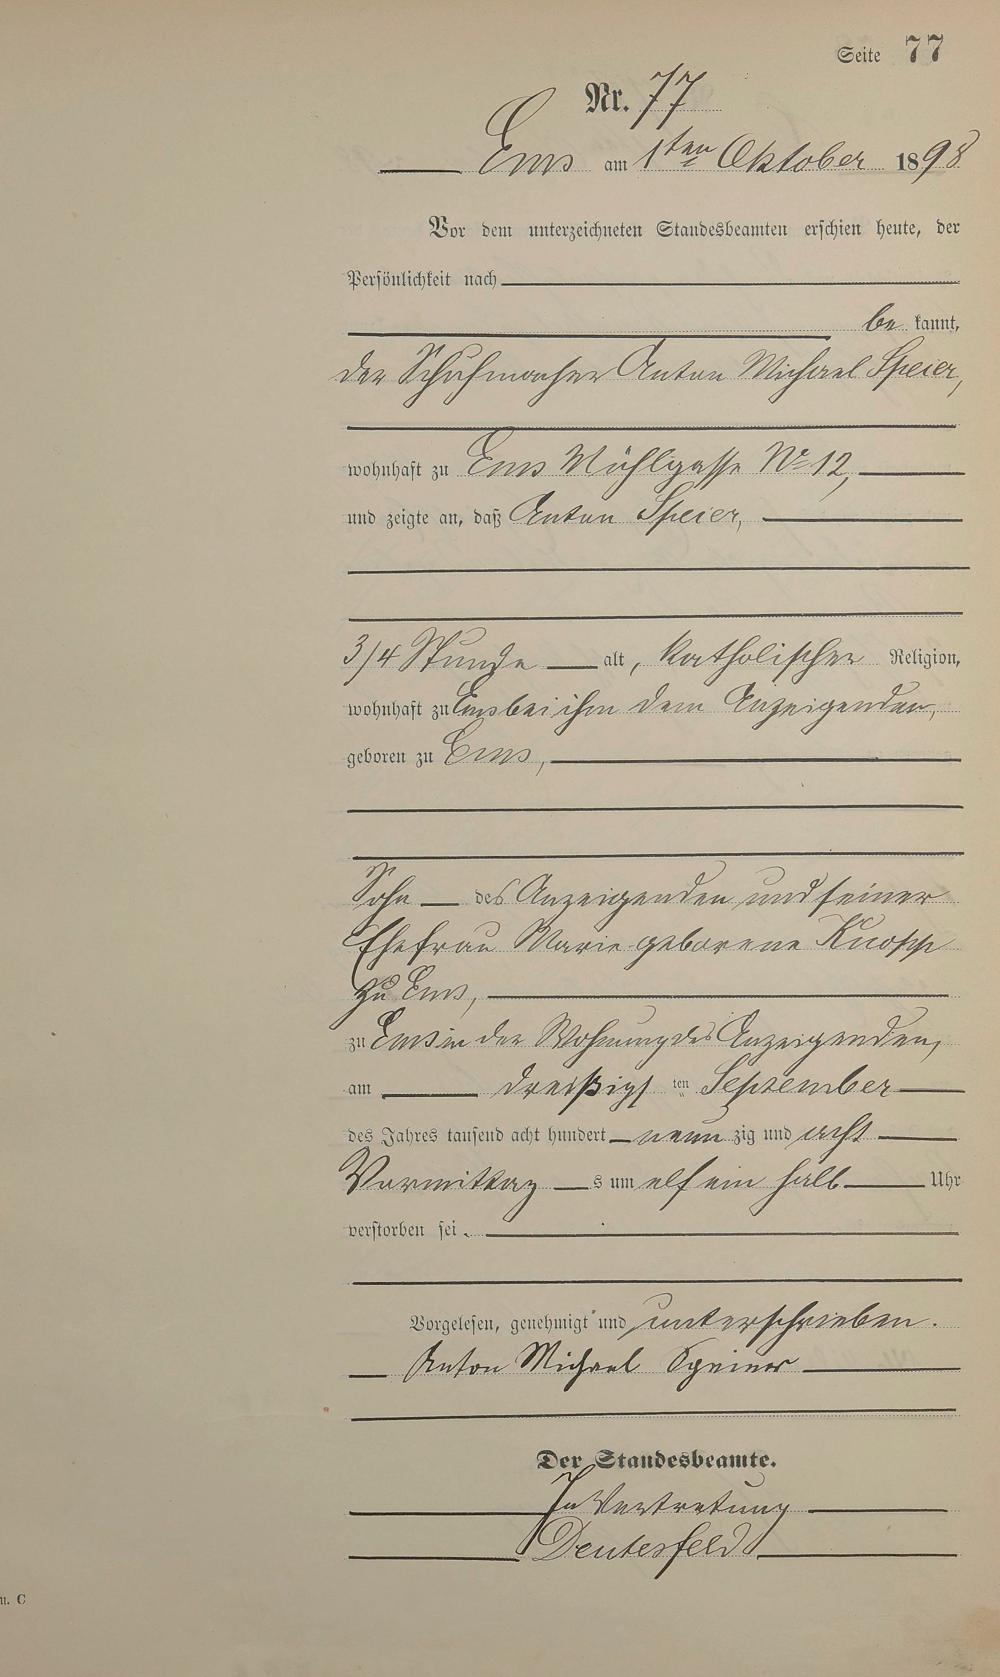 Seite 77
Nr. 77
Ems am 1ten Oktober 1898
Vor dem unterzeichneten Standesbeamten erschien heute, der
Persönlichkeit nach
be kannt,
der Schuhmacher Anton Michael Speier,
wohnhaft zu Ems Mühlgasse No 12,
und zeigte an, daß Anton Speier,
3/4 Stunde alt, katholischer Religion,
wohnhaft zu Ems bei ihm dem Anzeigenden,
geboren zu Ems,
Sohn des Anzeigenden und seiner
Ehefrau Marie geborene Knopp
zu Ems,
zu Ems in der Wohnung des Anzeigenden,
am dreißigsten September
des Jahres tausend acht hundert neun zig und acht
Vormittag s um elf ein halb Uhr
verstorben sei.
Vorgelesen, genehmigt und unterschrieben.
Anton Michael Speier
Der Standesbeamte.
In Vertretung
u. C